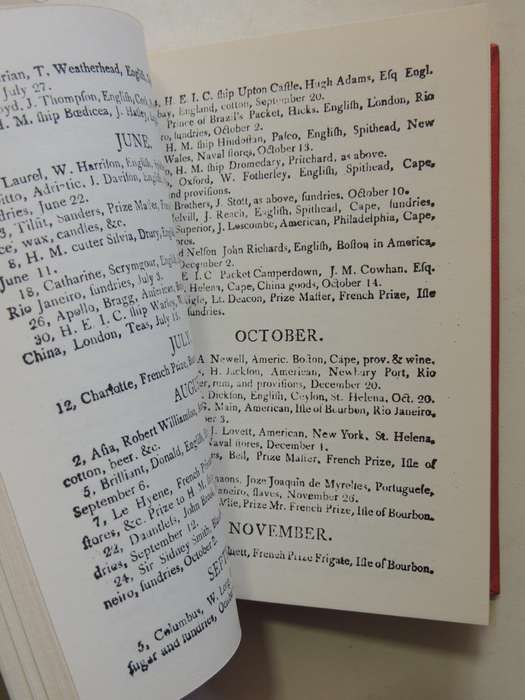 rian, T. Weatherhead, English,
July 27.
oyd, J. Thompson, English,
H. M. ship Bœdicea, J. Hatley,
JUNE.
Laurel, W. Harrison, English,
itto, Adriatic. J. Davison, English,
dries, June 22.
3, Tilsit, Sanders, Prize Master,
ce, wax, candles, &c.
8, H. M. cutter Silvia, Drury, English,
June 11.
18, Catharine, Scrymgour, English,
Rio Janeiro, sundries, July 3.
26, Apollo, Bragg, American,
30, H. E. I. C. ship Warley,
China, London, Teas, July 13.
JULY
12, Charlotte, French Prize,
AUGU
2, Asia, Robert Williamson,
cotton, beer. &c.
5, Brilliant, Donald, English,
September 6.
7, Le Hyene, French
stores, &c. Prize to H. M.
22, Dauntless, John
dries, September 12.
24, Sir Sidney Smith,
neiro, sundries, October 2.
SEPT
5, Columbus, W. Long
sugar and sundries, Octob
, H. E. I. C. ship Upton Castle. Hugh Adams, Esq Engl.
bay, England, cotton, September 20.
Prince of Brazil's Packet, Hicks. English, London, Rio
, sundries, October 2.
H. M. ship Hindostan, Pasco, English, Spithead, New
Wales, Naval stores, October 13.
, H. M. ship Dromedary, Pritchard, as above.
, Oxford, W. Fotherley. English, Spithead, Cape,
and provisions.
Brothers, J. Stott, as above, sundries. October 10.
elvill, J. Reach, English, Spithead, Cape, sundries.
Superior, J. Luscombe, American, Philadelphia, Cape,
res.
d Nelson John Richards, English, Boston in America,
December 2.
E. I. C Packet Camperdown, J. M. Cowhan, Esq.
Helena, Cape, China goods, October 14.
igle, Lt. Deacon, Prize Master, French Prize, Isle
sundries.
OCTOBER.
A. Newell, Americ. Boston, Cape, prov. & wine.
H. Jackson, American, Newbury Port, Rio
er, rum, and provisions, December 20.
Dickson, English, Ceylon, St. Helena, Oct. 20.
G. Main, American, Isle of Bourbon, Rio Janeiro,
ber 3.
J. Lovett, American, New York, St. Helena,
Naval stores, December 1.
es, Bell, Prize Master, French Prize, Isle of
Joze Joaquin de Myrelies, Portuguese,
aneiro, slaves, November 26.
Prize Mr. French Prize, Isle of Bourbon.
NOVEMBER.
nett, French Prize Frigate, Isle of Bourbon.